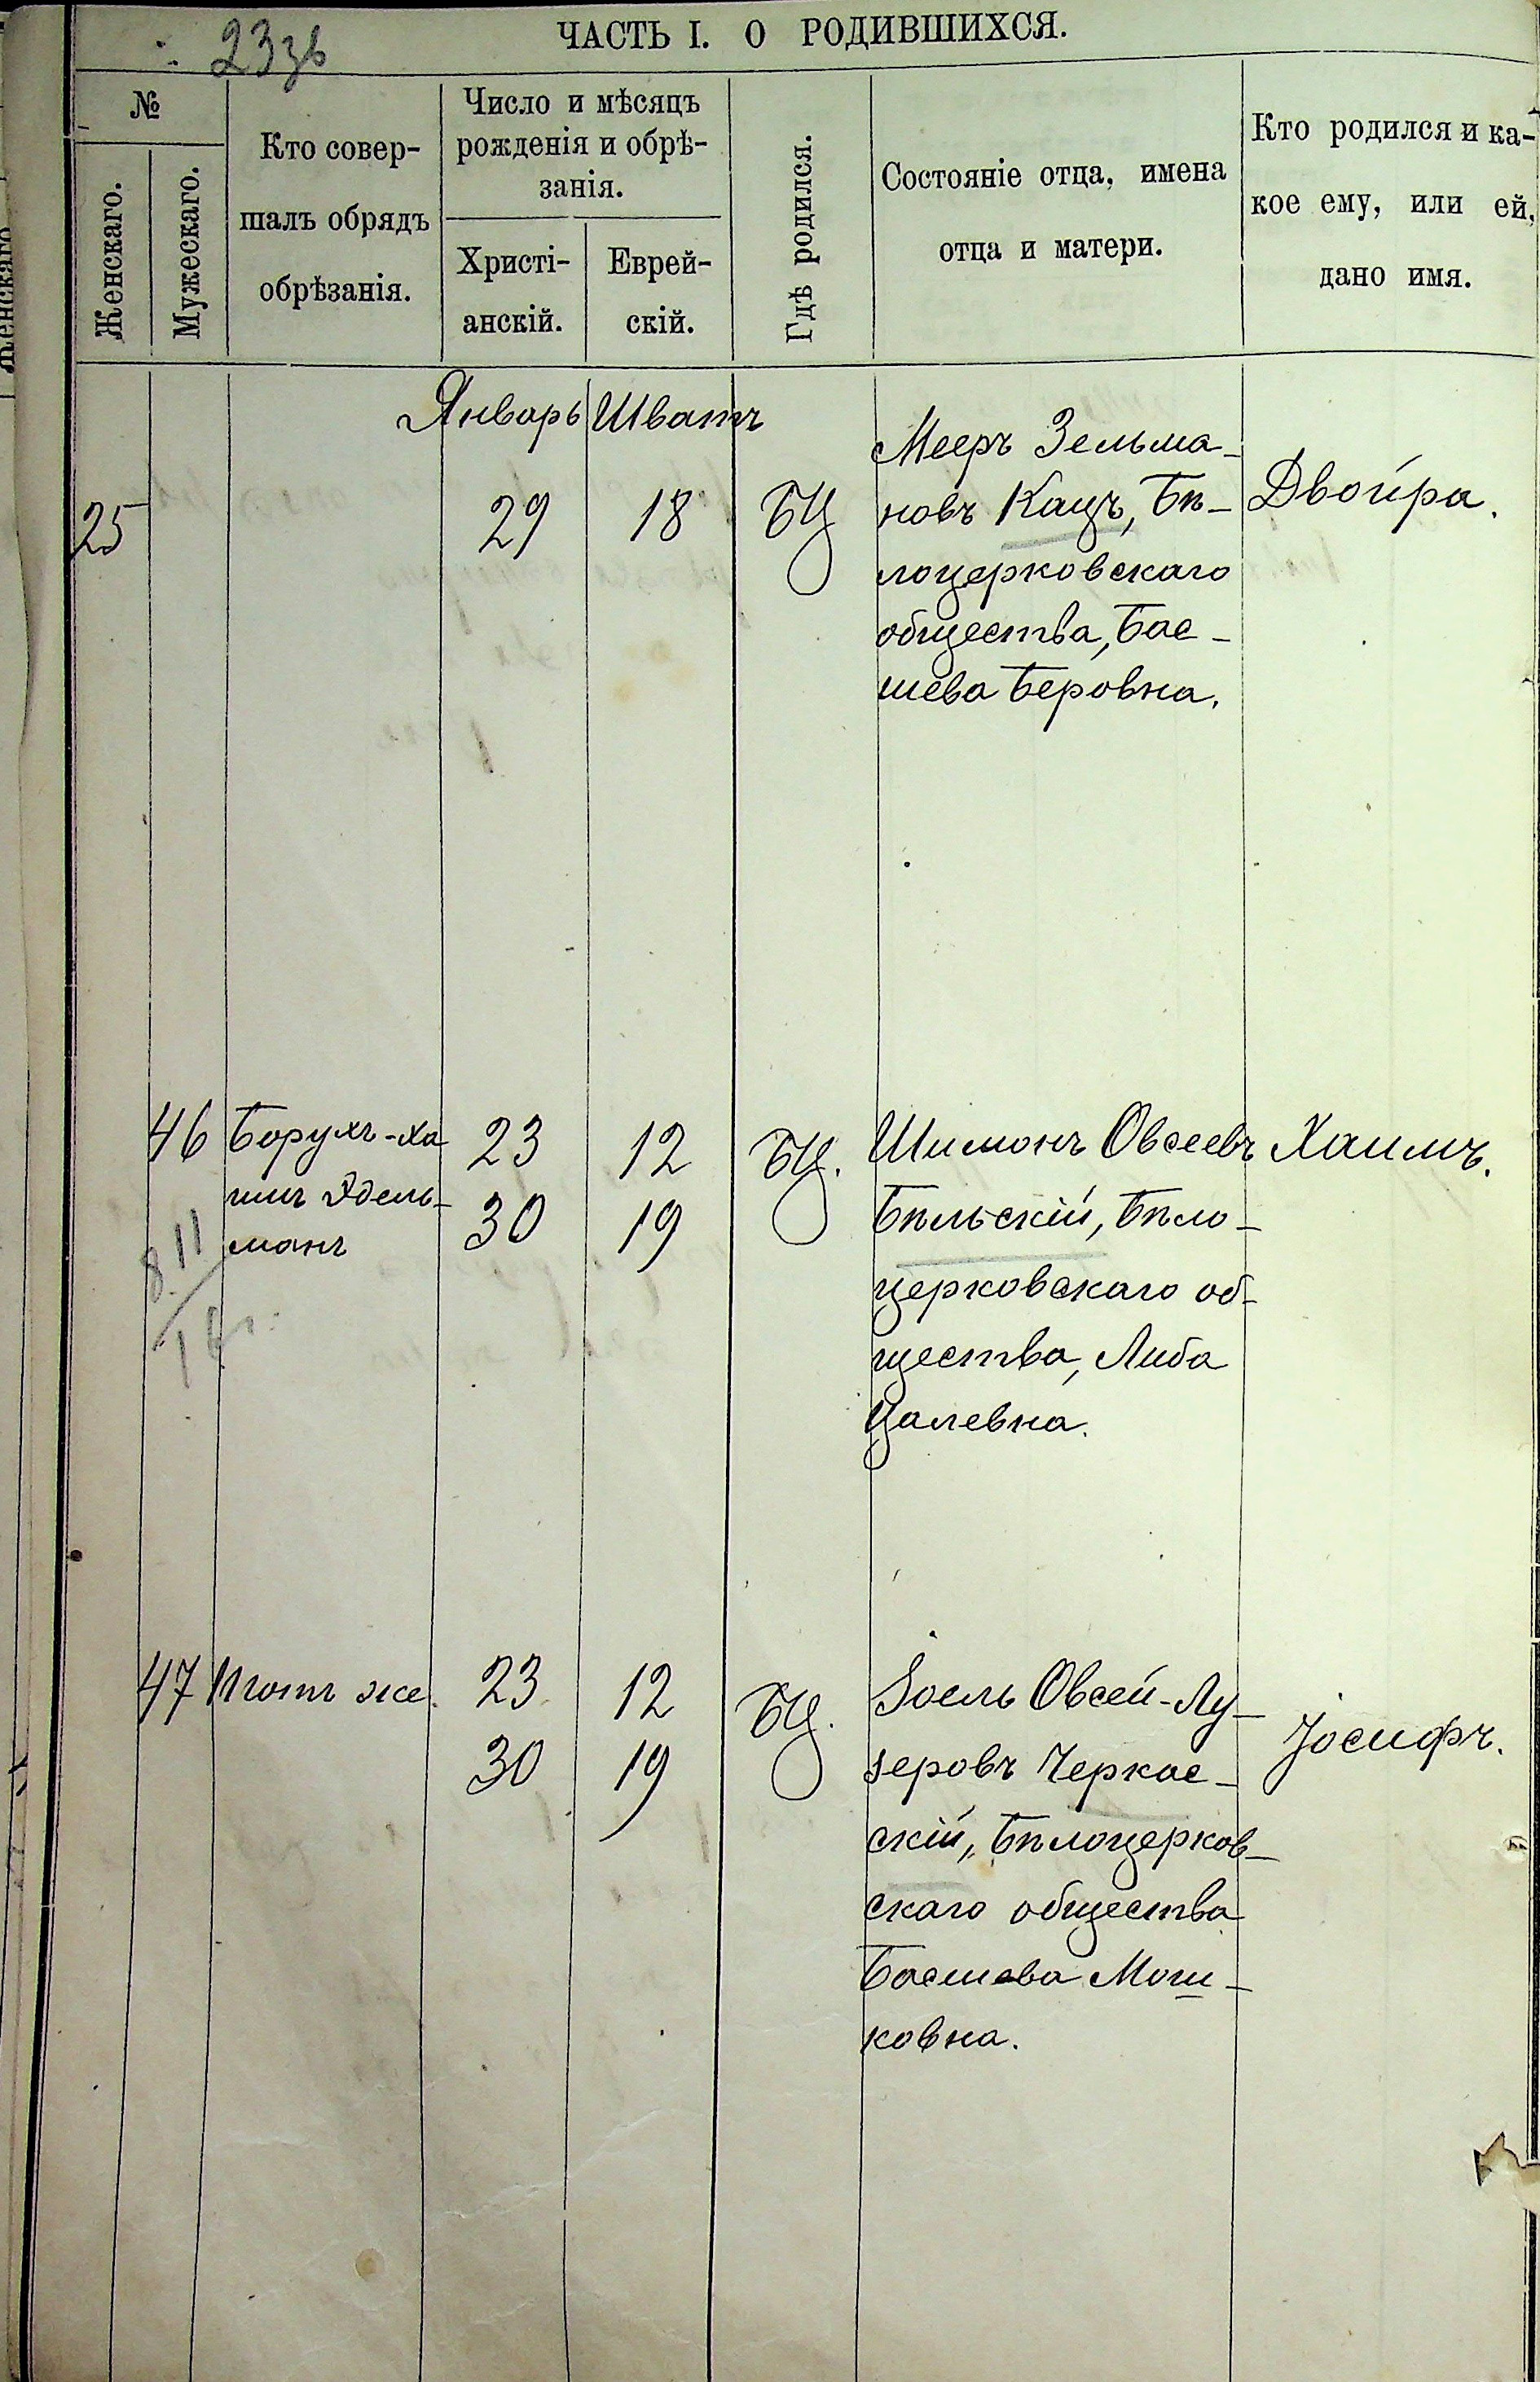 23зв
ЧАСТЬ I. О РОДИВШИХСЯ.
№
Женскаго.
Мужескаго.
Кто совер-
шалъ обрядъ
обрѣзанія.
Число и мѣсяцъ
рожденія и обрѣ-
занія.
Христі-
анскій.
Еврей-
скій.
Гдѣ родился.
Состояніе отца, имена
отца и матери.
Кто родился и ка-
кое ему, или ей,
дано имя.
Январь Шватъ
25
29
18
БЦ
Мееръ Зельма-
новъ Кацъ, Бѣ-
лоцерковскаго
общества, Бас-
шева Беровна.
Двойра.
46
Борухъ-Ха
имъ Эдель-
манъ
23
30
12
19
БЦ.
Шимонъ Овсеевъ
Бѣльскій, Бѣло-
церковскаго об-
щества, Либа
Цалевна.
Хаимъ.
47
тотъ же.
23
30
12
19
БЦ.
Іоель Овсей-Лу-
зеровъ Черкас-
скій, Бѣлоцерков-
скаго общества
Басшева Мош-
ковна.
Іосифъ.